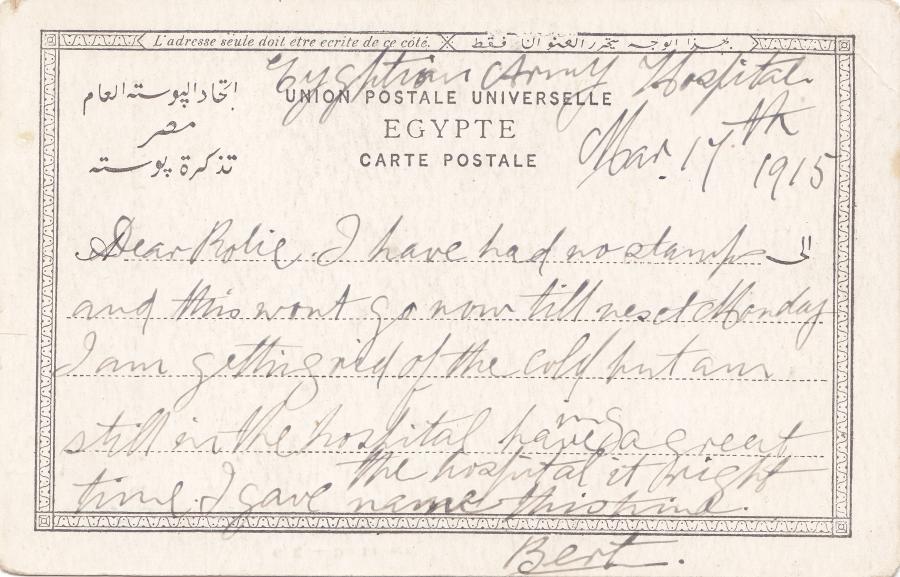 L'adresse seule doit être ecrite de ce côté.
بهذا الوجه يتحرر العنوان فقط
Egyghtian Army Hospital
اتحاد البوسته العام
UNION POSTALE UNIVERSELLE
مصر
EGYPTE
تذكرة بوسته
CARTE POSTALE
Mar. 17th
1915
Dear Rolie. I have had no stamps
الى
and this wont go now till next Monday
I am getting rid of the cold but am
still in the hospital having a great
time. I gave the hospital it bright
name this
Bert.